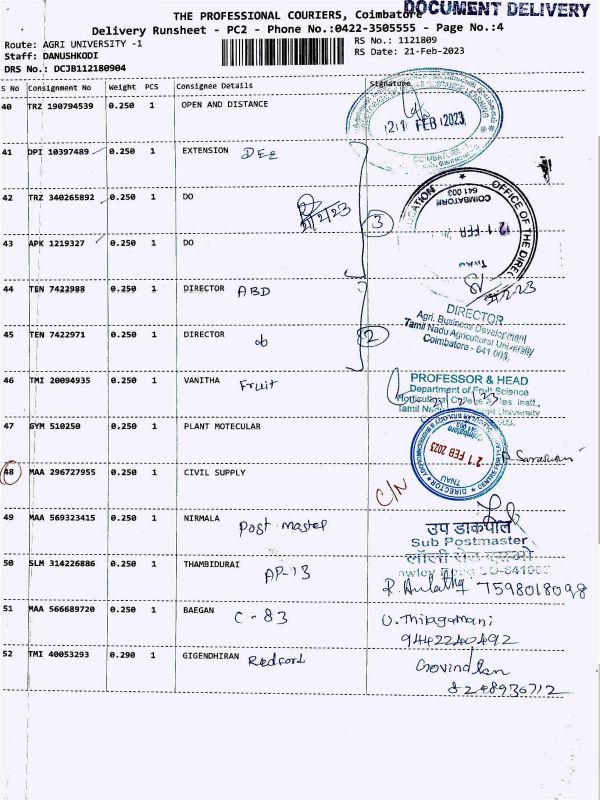 DOCUMENT DELIVERY
THE PROFESSIONAL COURIERS, Coimbatore
Delivery Runsheet - PC2 - Phone No.:0422-3505555 - Page No.:4
Route: AGRI UNIVERSITY -1
RS No.: 1121809
Staff: DANUSHKODI
RS Date: 21-Feb-2023
DRS No.: DCJB112180904
S No Consignment No Weight PCS Consignee Details Signature
40 TRZ 190794539 0.250 1 OPEN AND DISTANCE
21 FEB 2023
COIMBATORE
41 DPI 10397489 0.250 1 EXTENSION DEE
42 TRZ 340265892 0.250 1 DO
21/2/23
3
OFFICE OF THE
COIMBATORE
641 003
21 FEB
TNAU
43 APK 1219327 0.250 1 DO
44 TEN 7422988 0.250 1 DIRECTOR ABD
DIRECTOR
Agri. Business Development
Tamil Nadu Agricultural University
Coimbatore - 641 003.
45 TEN 7422971 0.250 1 DIRECTOR do
2
46 TMI 20094935 0.250 1 VANITHA Fruit
PROFESSOR & HEAD
Department of Fruit Science
Tamil University
47 GYM 510250 0.250 1 PLANT MOTECULAR
21 FEB 2023
DIRECTOR
TNAU
48 MAA 296727955 0.250 1 CIVIL SUPPLY
C/N
49 MAA 569323415 0.250 1 NIRMALA Post master
उप डाकपाल
Sub Postmaster
50 SLM 314226886 0.250 1 THAMBIDURAI AP-13
7598018098
51 MAA 566689720 0.250 1 BAEGAN C-83
U. Thilagamani
9442240492
52 TMI 40053293 0.290 1 GIGENDHIRAN Redford
8248936712